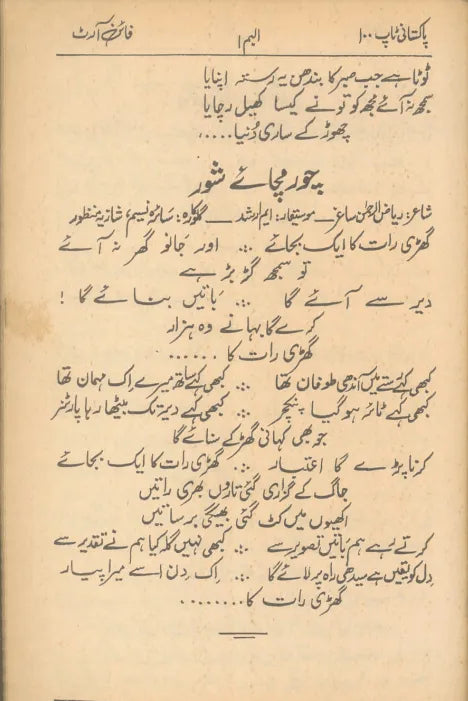 پاکستانی ٹاپ ۱۰۰ البم ۱ فائن آرٹ
ٹوٹا ہے جب صبر کا بندھن یہ رستہ اپنایا
سمجھ نہ آئے مجھ کو تو نے کیسا کھیل رچایا
چھوڑ کے ساری دُنیا.....
چور مچائے شور
شاعر: ریاض الرحمٰن ساغر__ موسیقار: ایم ارشد__ گلوکارہ: سائرہ نسیم، شازیہ منظور
گھڑی رات کا ایک بجائے ... اور جانو گھر نہ آئے
تو سمجھ گڑبڑ ہے
دیر سے آئے گا ... باتیں بنائے گا !
کرے گا بہانے وہ ہزار
گھڑی رات کا ......
کبھی کہے رستے میں آندھی طوفان تھا ... کبھی کہے ساتھ میرے اِک مہمان تھا
کبھی کہے ٹائر ہو گیا پنکچر ... کبھی کہے دیر تک بیٹھا رہا پارٹنر
جو بھی کہانی گھڑ کے سنائے گا
کرنا پڑے گا اعتبار ... گھڑی رات کا ایک بجائے
جاگ کے گزاری گئی تاروں بھری راتیں
اکھیوں میں کٹ گئی بھیگی برساتیں
کرتے رہے ہم باتیں تصویر سے ... کبھی نہیں گلہ کیا ہم نے تقدیر سے
دِل کو یقیں ہے سیدھی راہ پر لائے گا ... اِک دِن اسے میرا پیار
گھڑی رات کا........